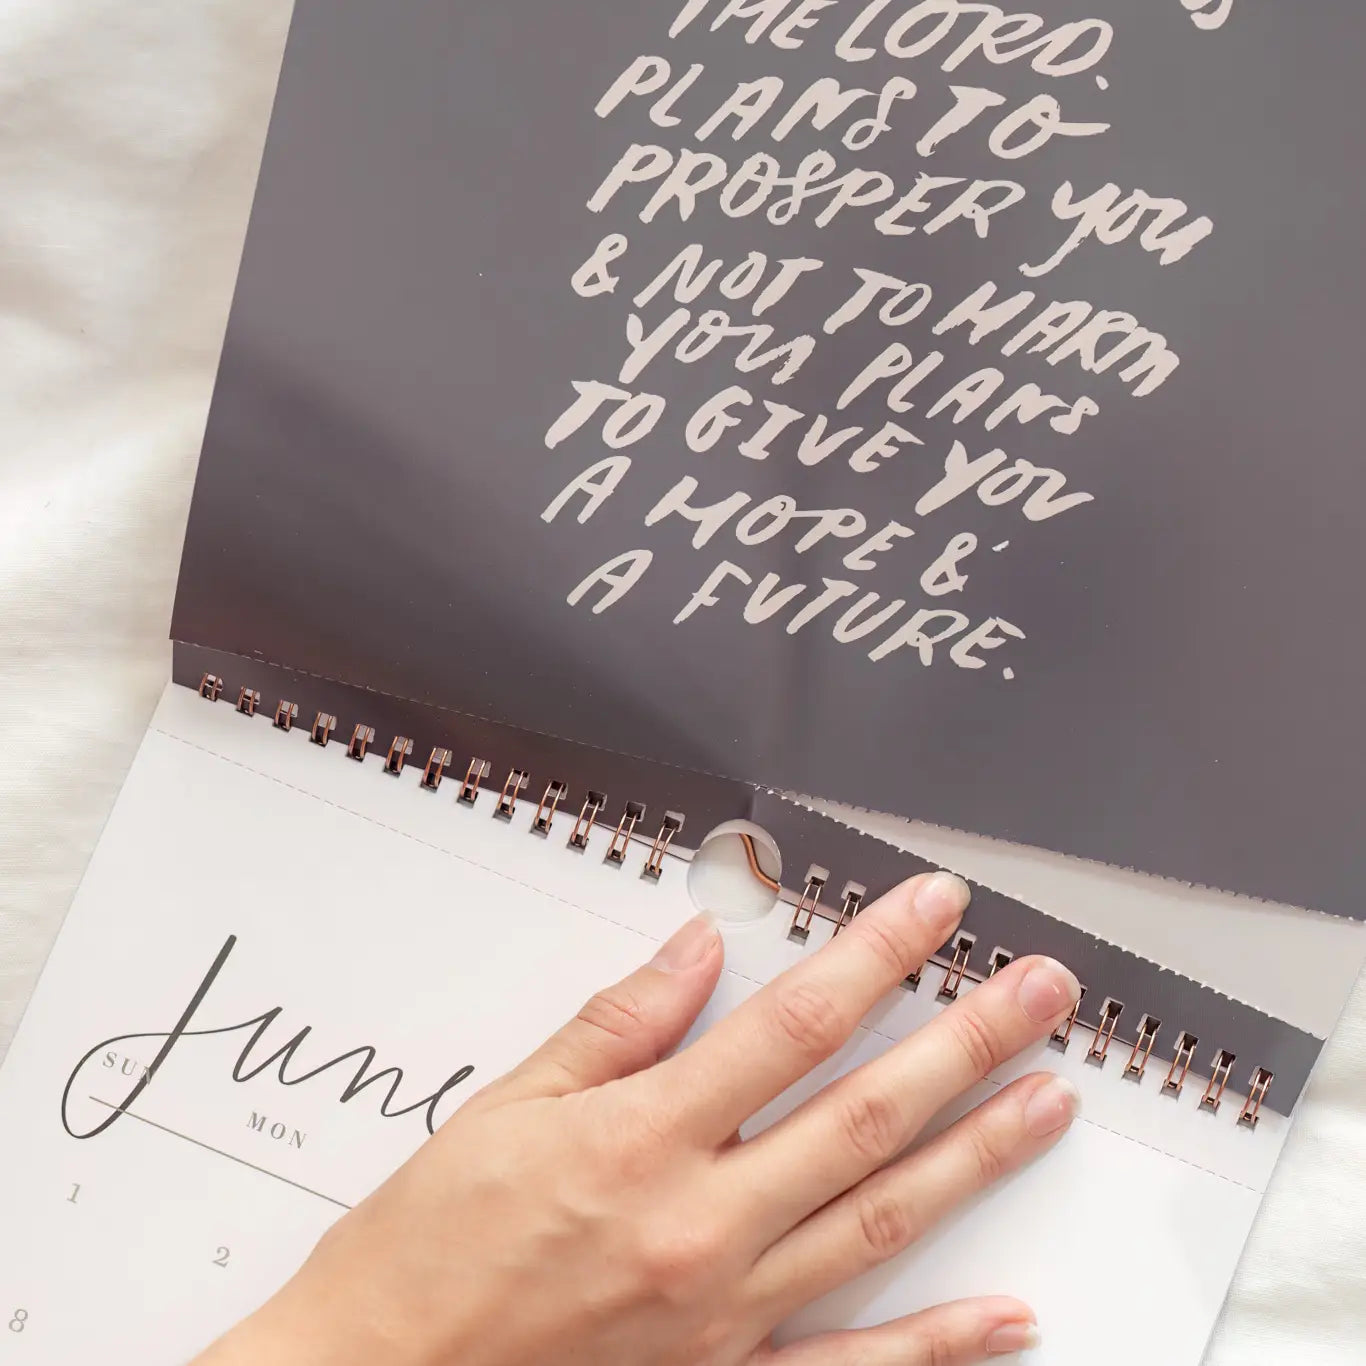 THE LORD.
PLANS TO
PROSPER YOU
& NOT TO HARM
YOU PLANS
TO GIVE YOU
A HOPE &
A FUTURE.
June
SUN
MON
1
2
8